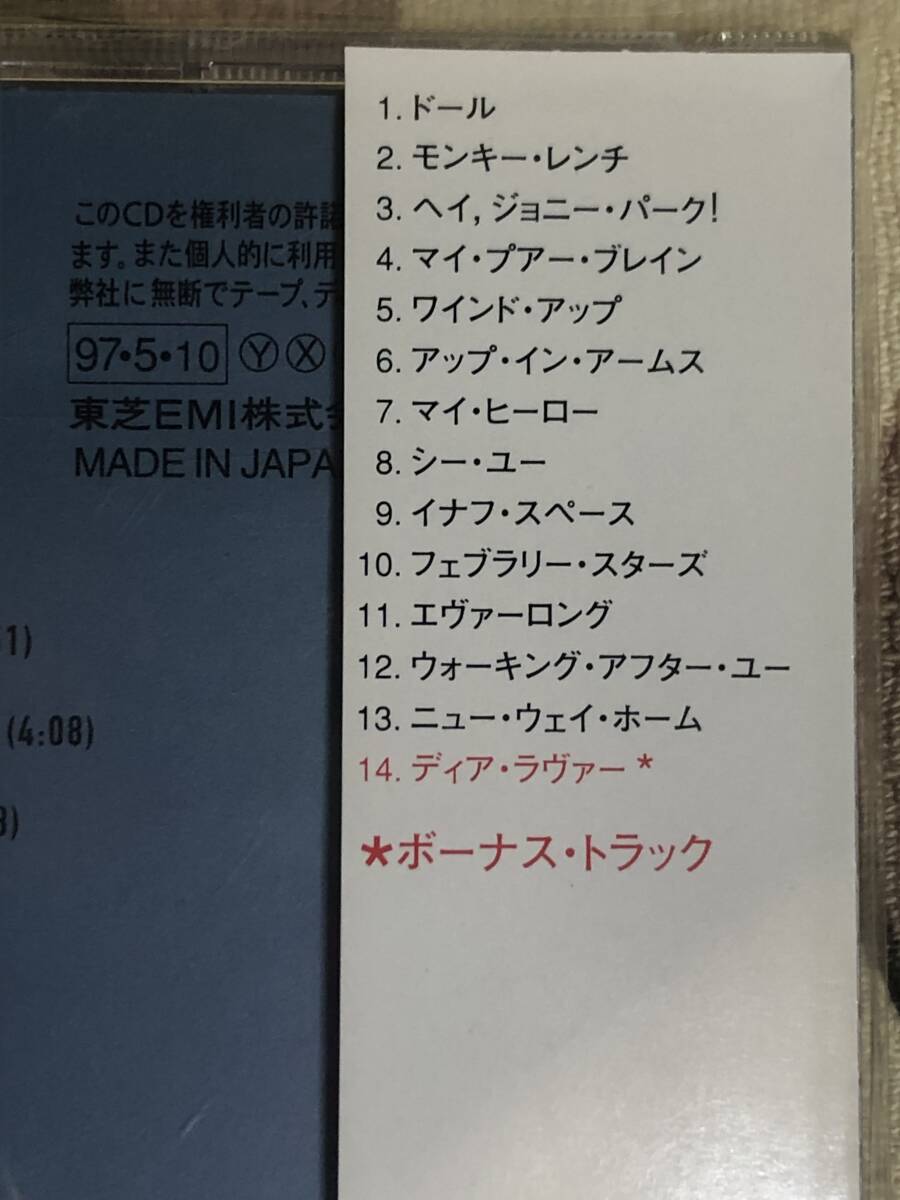 このCDを権利者の許諾
ます。また個人的に利用
弊社に無断でテープ、デ
97・5・10 Ⓨ Ⓧ
東芝EMI株式
MADE IN JAPA
1)
(4:08)
3)
1. ドール
2. モンキー・レンチ
3. ヘイ, ジョニー・パーク!
4. マイ・プアー・ブレイン
5. ワインド・アップ
6. アップ・イン・アームス
7. マイ・ヒーロー
8. シー・ユー
9. イナフ・スペース
10. フェブラリー・スターズ
11. エヴァーロング
12. ウォーキング・アフター・ユー
13. ニュー・ウェイ・ホーム
14. ディア・ラヴァー *
★ボーナス・トラック